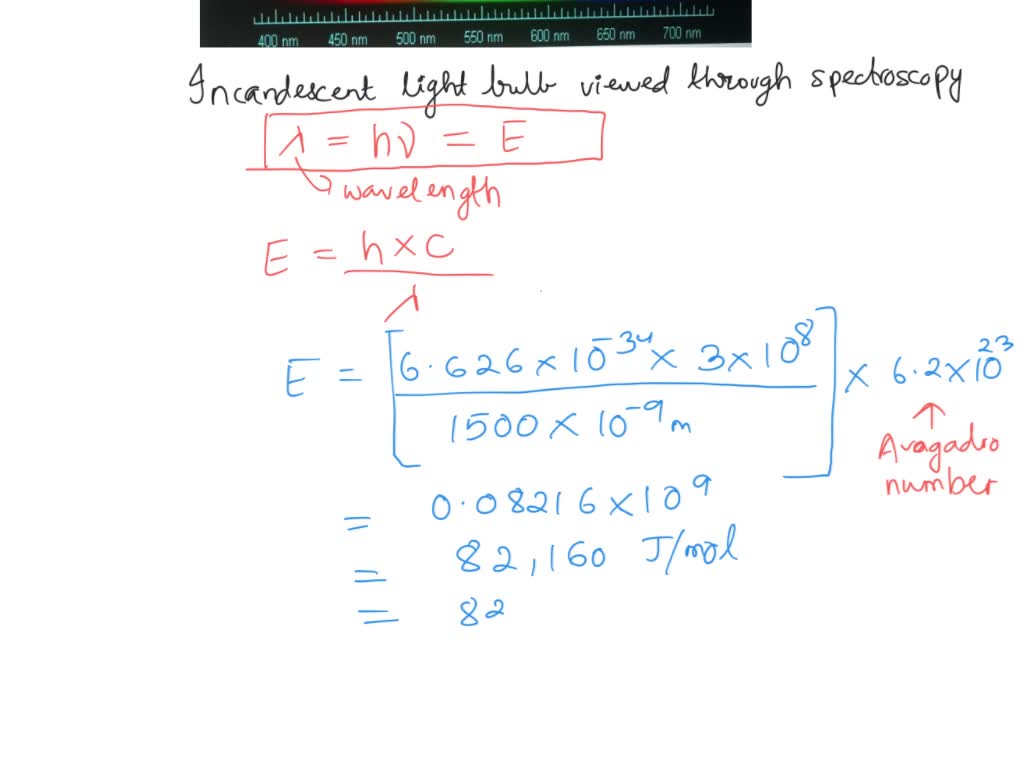 400 nm 450 nm 500 nm 550 nm 600 nm 650 nm 700 nm
Incandescent light bulb viewed through spectroscopy
λ = hν = E
wavelength
E = h×c
λ
E = [6.626 × 10⁻³⁴ × 3×10⁸
1500 × 10⁻⁹ m] × 6.2×10²³
Avagadro
number
= 0.08216×10⁹
= 82,160 J/mol
= 82